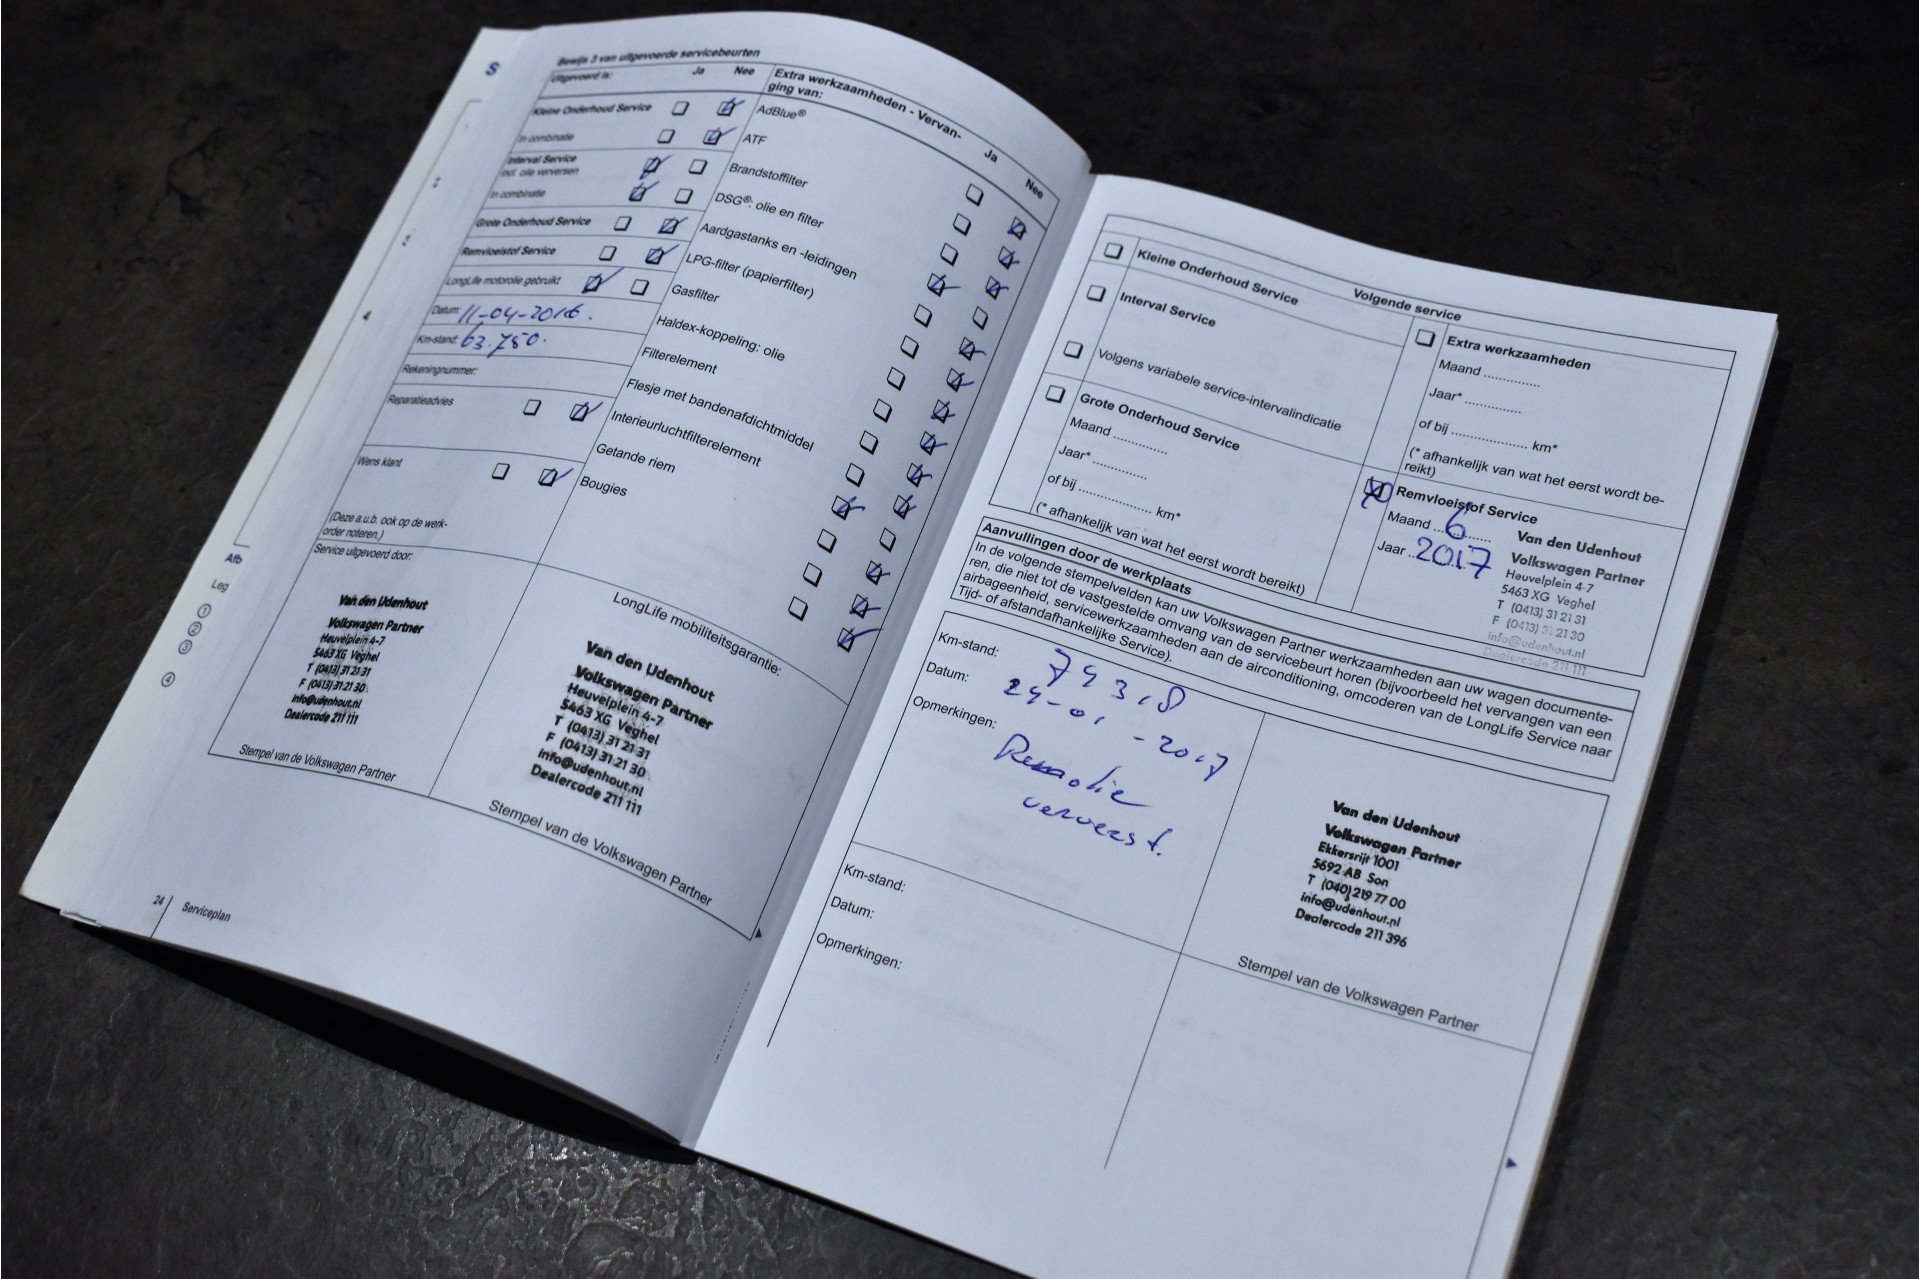 S
Afb
Leg
1
2
3
4
Bewijs 3 van uitgevoerde servicebeurten
Uitgevoerd is: Ja Nee
Kleine Onderhoud Service
In combinatie
Interval Service
incl. olie verversen
In combinatie
Grote Onderhoud Service
Remvloeistof Service
LongLife motorolie gebruikt
Datum: 11-04-2016.
Km-stand: 63.750.
Rekeningnummer:
Reparatieadvies
Wens klant
(Deze a.u.b. ook op de werk-
order noteren.)
Service uitgevoerd door:
Van den Udenhout
Volkswagen Partner
Heuvelplein 4-7
5463 XG Veghel
T (0413) 31 21 31
F (0413) 31 21 30
info@udenhout.nl
Dealercode 211 111
Stempel van de Volkswagen Partner
Extra werkzaamheden - Vervan-
ging van:
Ja Nee
AdBlue®
ATF
Brandstoffilter
DSG®: olie en filter
Aardgastanks en -leidingen
LPG-filter (papierfilter)
Gasfilter
Haldex-koppeling: olie
Filterelement
Flesje met bandenafdichtmiddel
Interieurluchtfilterelement
Getande riem
Bougies
LongLife mobiliteitsgarantie:
Van den Udenhout
Volkswagen Partner
Heuvelplein 4-7
5463 XG Veghel
T (0413) 31 21 31
F (0413) 31 21 30
info@udenhout.nl
Dealercode 211 111
Stempel van de Volkswagen Partner
24 Serviceplan
Volgende service
Kleine Onderhoud Service
Interval Service
Volgens variabele service-intervalindicatie
Grote Onderhoud Service
Maand ..............
Jaar* ..............
of bij .................... km*
(* afhankelijk van wat het eerst wordt bereikt)
Extra werkzaamheden
Maand ..............
Jaar* ..............
of bij .................... km*
(* afhankelijk van wat het eerst wordt be-
reikt)
Remvloeistof Service
Maand 6
Jaar 2017
Van den Udenhout
Volkswagen Partner
Heuvelplein 4-7
5463 XG Veghel
T (0413) 31 21 31
F (0413) 31 21 30
info@udenhout.nl
Dealercode 211 111
Aanvullingen door de werkplaats
In de volgende stempelvelden kan uw Volkswagen Partner werkzaamheden aan uw wagen documente-
ren, die niet tot de vastgestelde omvang van de servicebeurt horen (bijvoorbeeld het vervangen van een
airbageenheid, servicewerkzaamheden aan de airconditioning, omcoderen van de LongLife Service naar
Tijd- of afstandafhankelijke Service).
Km-stand: 74318
Datum: 24-01-2017
Opmerkingen: Remolie
ververst.
Van den Udenhout
Volkswagen Partner
Ekkersrijt 1001
5692 AB Son
T (040) 219 77 00
info@udenhout.nl
Dealercode 211 396
Stempel van de Volkswagen Partner
Km-stand:
Datum:
Opmerkingen: